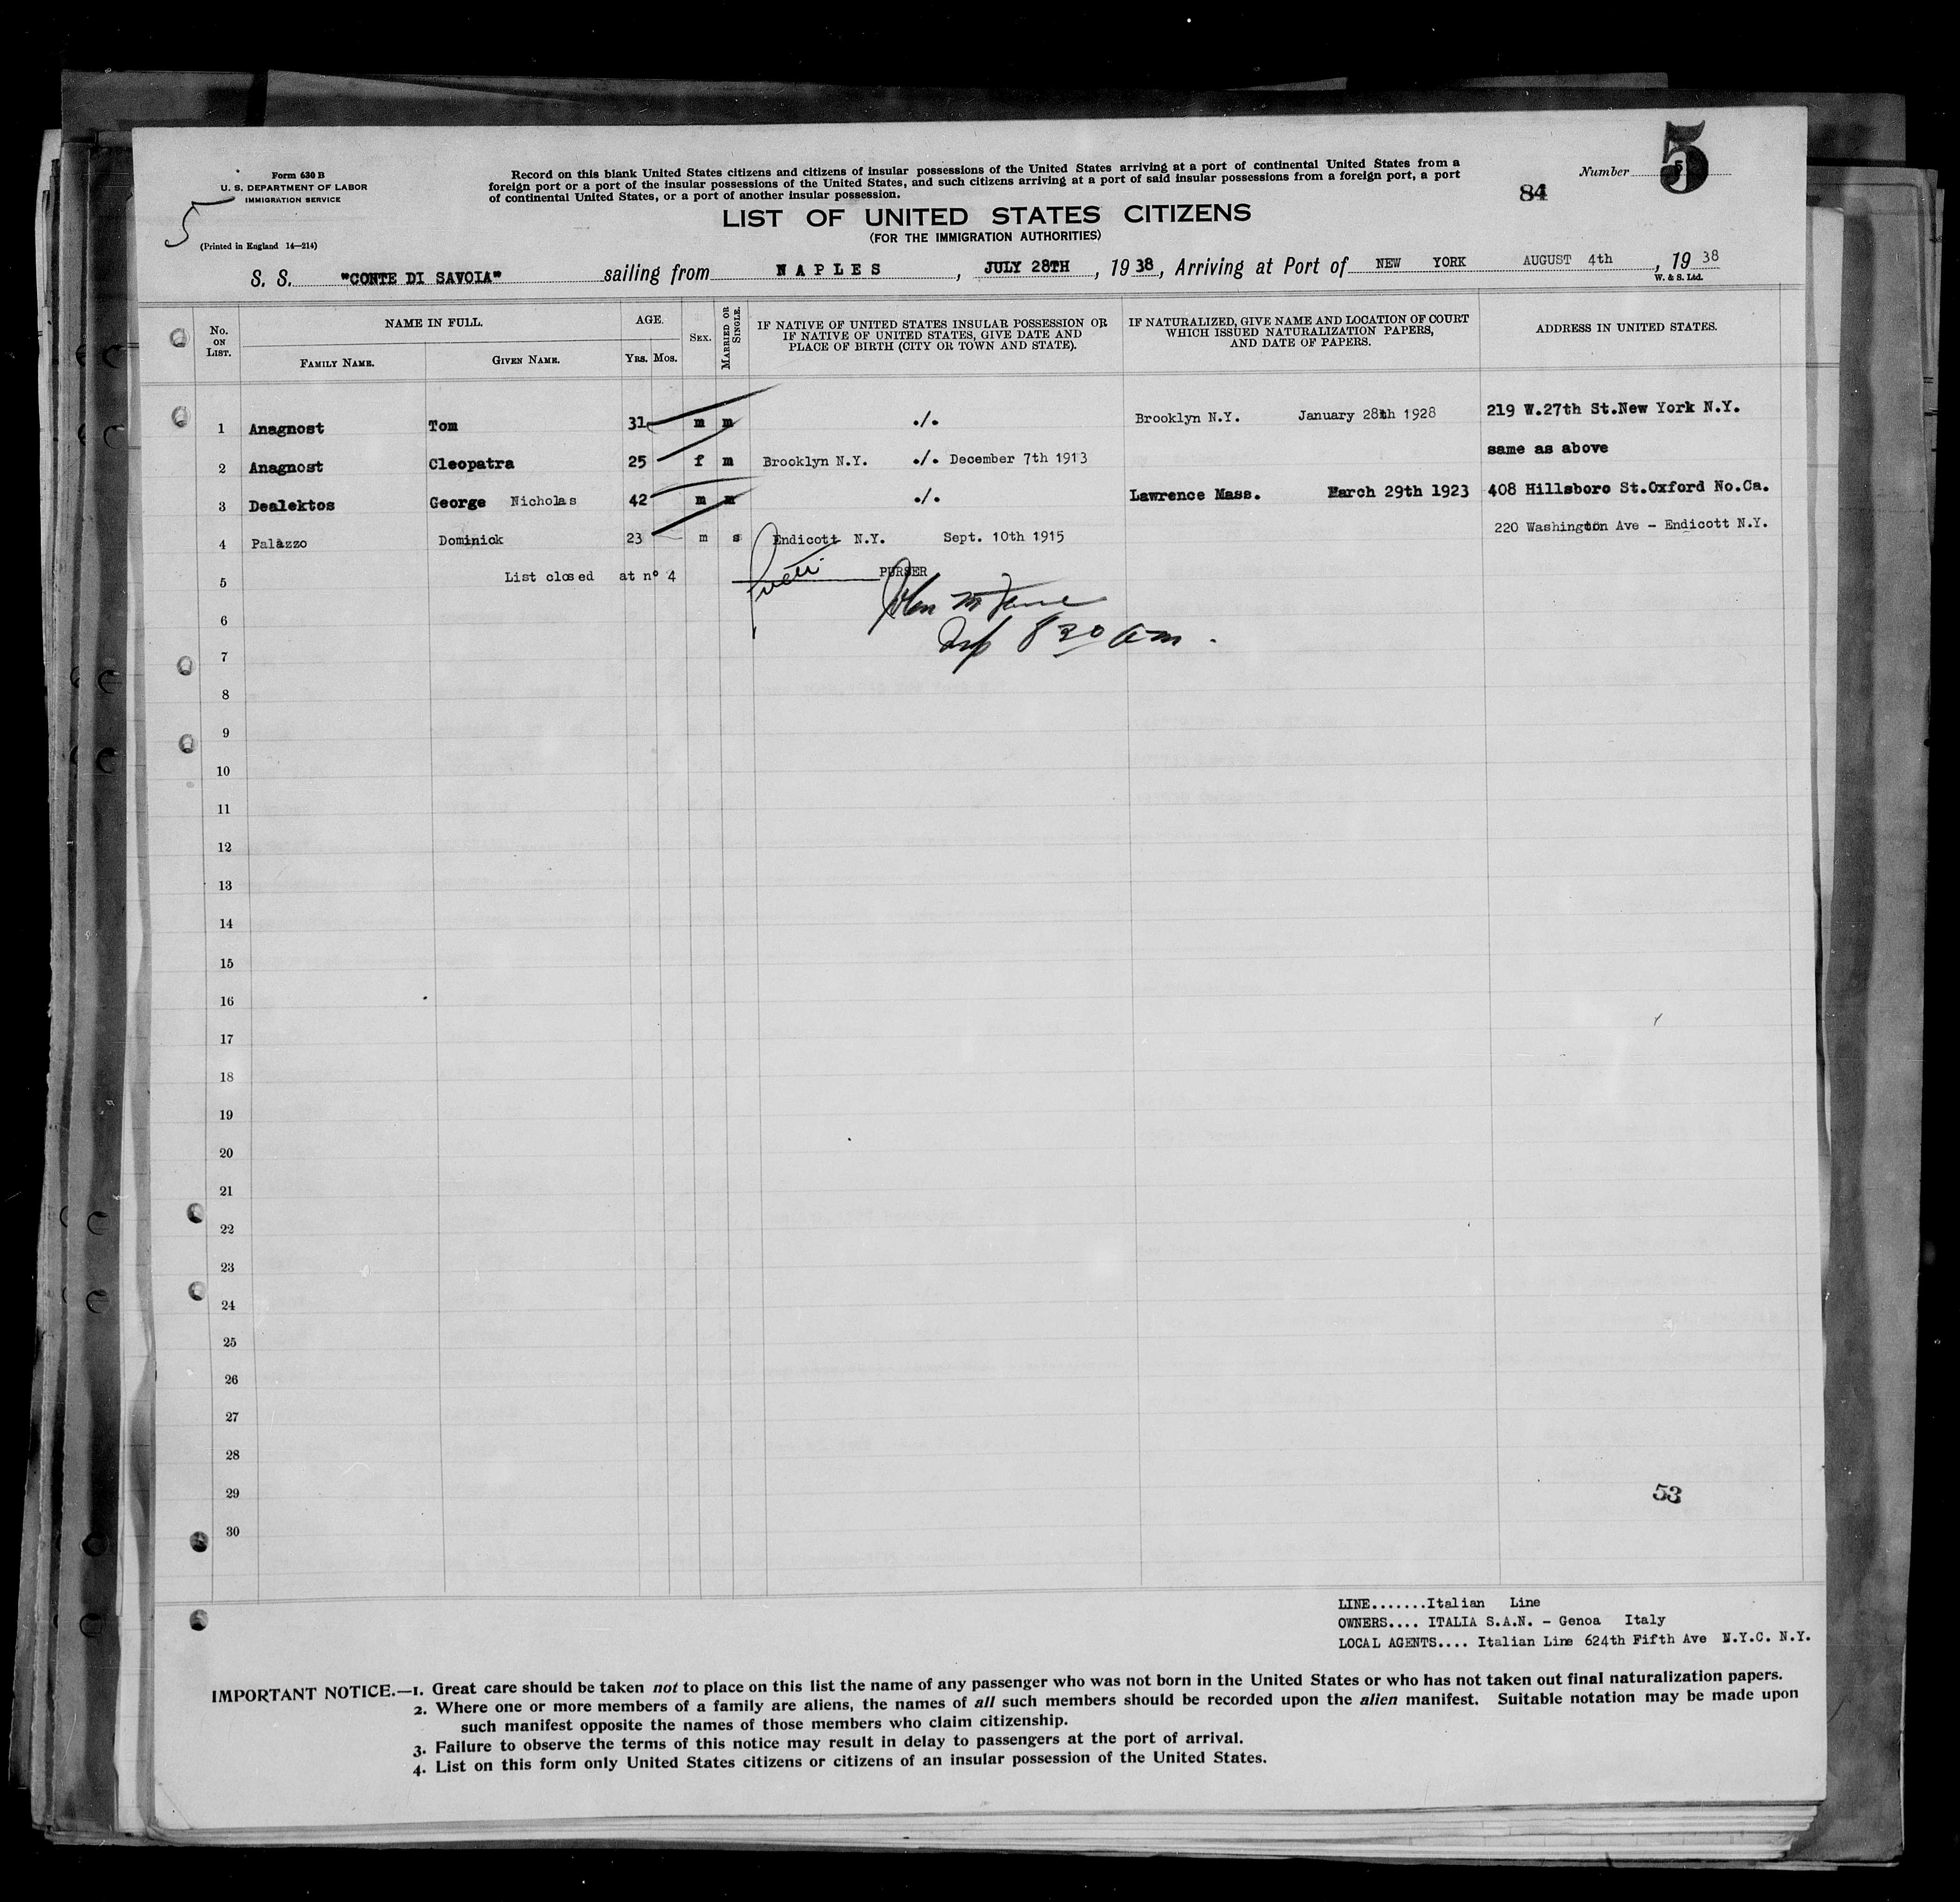 Form 630 B
U. S. DEPARTMENT OF LABOR
IMMIGRATION SERVICE
5
(Printed in England 14—214)
Record on this blank United States citizens and citizens of insular possessions of the United States arriving at a port of continental United States from a
foreign port or a port of the insular possessions of the United States, and such citizens arriving at a port of said insular possessions from a foreign port, a port
of continental United States, or a port of another insular possession.
Number 5
5
84
LIST OF UNITED STATES CITIZENS
(FOR THE IMMIGRATION AUTHORITIES)
S. S. "CONTE DI SAVOIA" sailing from NAPLES, JULY 28TH, 1938, Arriving at Port of NEW YORK AUGUST 4th, 1938
W. & S. Ltd.
No. ON LIST. NAME IN FULL. FAMILY NAME. GIVEN NAME. AGE. YRS. MOS. SEX. MARRIED OR SINGLE. IF NATIVE OF UNITED STATES INSULAR POSSESSION OR IF NATIVE OF UNITED STATES, GIVE DATE AND PLACE OF BIRTH (CITY OR TOWN AND STATE). IF NATURALIZED, GIVE NAME AND LOCATION OF COURT WHICH ISSUED NATURALIZATION PAPERS, AND DATE OF PAPERS. ADDRESS IN UNITED STATES.
1 Anagnost Tom 31 m m ./. Brooklyn N.Y. January 28th 1928 219 W.27th St.New York N.Y.
2 Anagnost Cleopatra 25 f m Brooklyn N.Y. ./. December 7th 1913 same as above
3 Dealektos George Nicholas 42 m m ./. Lawrence Mass. March 29th 1923 408 Hillsboro St.Oxford No.Ca.
4 Palazzo Dominick 23 m s Endicott N.Y. Sept. 10th 1915 220 Washington Ave - Endicott N.Y.
5 List closed at nº 4 PURSER
6
7 8 30 am.
8
9
10
11
12
13
14
15
16
17
18
19
20
21
22
23
24
25
26
27
28
29 53
30
LINE.......Italian Line
OWNERS.... ITALIA S.A.N. - Genoa Italy
LOCAL AGENTS.... Italian Line 624th Fifth Ave N.Y.C. N.Y.
IMPORTANT NOTICE.—1. Great care should be taken not to place on this list the name of any passenger who was not born in the United States or who has not taken out final naturalization papers.
2. Where one or more members of a family are aliens, the names of all such members should be recorded upon the alien manifest. Suitable notation may be made upon
such manifest opposite the names of those members who claim citizenship.
3. Failure to observe the terms of this notice may result in delay to passengers at the port of arrival.
4. List on this form only United States citizens or citizens of an insular possession of the United States.